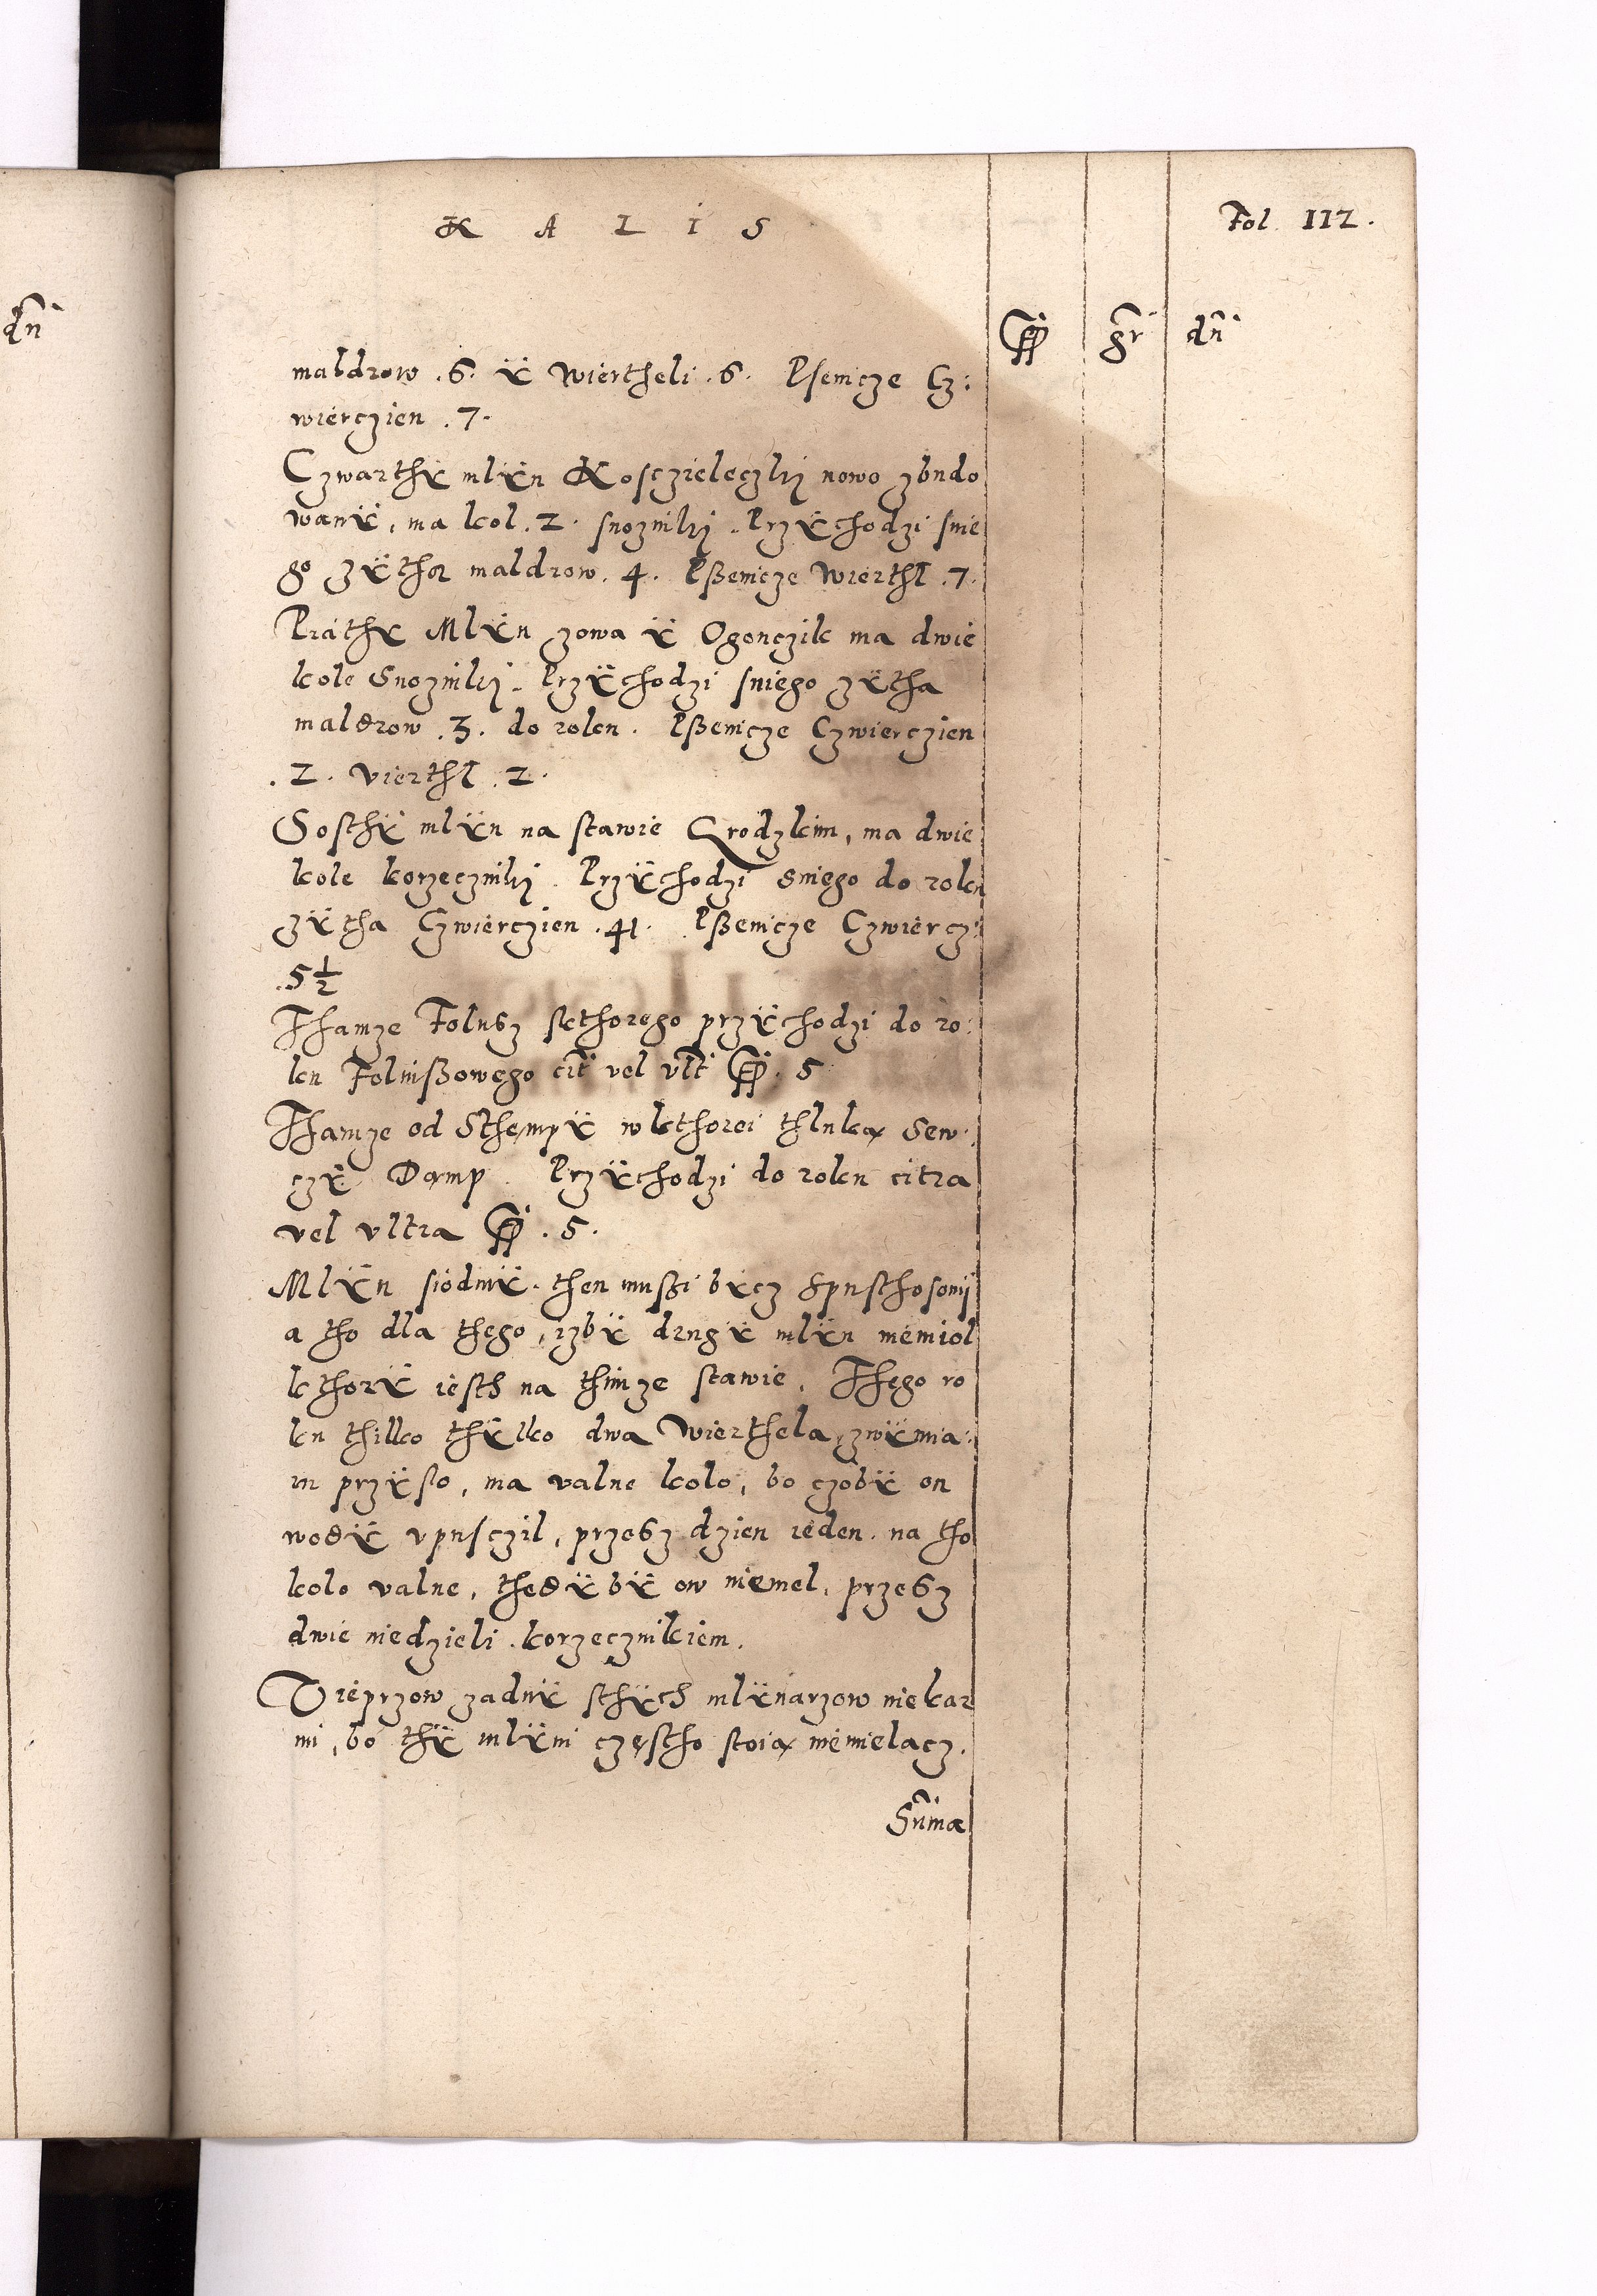 KALIS
Fol. 112.
dñ
gr dñ
maldrow .6. ÿ Wiertheli .6. Psenicze Cz:
wierczien .7.
Czwarthÿ mlÿn Kosczieleczki nowo zbudo
wanÿ, ma kol .2. snozniki. Przÿchodzi snie
go zÿtha maldrow .4. Pßenicze Wierthl .7.
Piathÿ Mlÿn zowa ÿ Ogonczik ma dwie
kole Snozniki. Przÿchodzi sniego zÿtha
maldrow .3. do roku. Pßenicze Czwierczien
.2. vierthl .2.
Sosthÿ mlÿn na stawie Grodzkim, ma dwie
kole korzeczniki. Przÿchodzi sniego do roku
zÿtha Czwierczien .41. Pßenicze Czwiercz:
.5½
Thamze Folusz skthorego przÿchodzi do ro:
ku Foluißowego cit vel vlt . 5
Thamze od Sthempÿ w kthorei thluką Sew:
czÿ Dąmp. Przÿchodzi do roku citra
vel vltra . 5.
Mlÿn siodmÿ. then mußi bÿcz spusthosonij
a tho dla thego, izbÿ drugÿ mlÿn niemiol
kthorÿ iesth na thimze stawie. Thego ro
ku thilko thÿlko dwa Wierthela, zwÿmia:
ru przÿslo, ma valne kolo, bo czobÿ on
wodÿ vpusczil, przesz dzien ieden. na tho
kolo valne, thedÿ bÿ ow niemel, przesz
dwie niedzieli. korzecznikiem.
Vieprzow zadnÿ sthÿch mlÿnarzow niekar
mi, bo thÿ mlÿni częstho stoią niemielacz.
Suma